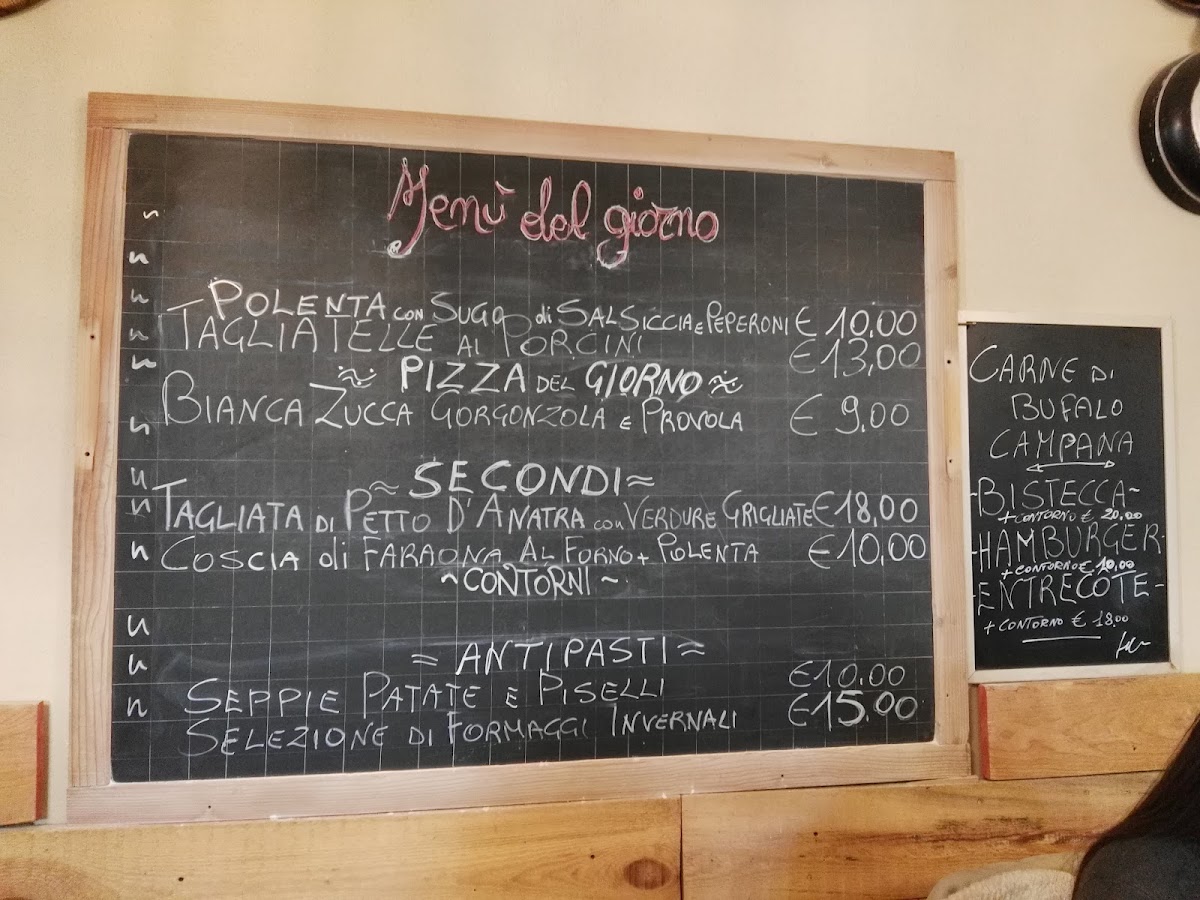 Menù del giorno
POLENTA CON SUGO di SALSICCIA E PEPERONI € 10,00
TAGLIATELLE AI PORCINI € 13,00
≈ PIZZA DEL GIORNO ≈
BIANCA ZUCCA GORGONZOLA E PROVOLA € 9.00
≈ SECONDI ≈
TAGLIATA DI PETTO D'ANATRA CON VERDURE GRIGLIATE € 18,00
COSCIA di FARAONA AL FORNO + POLENTA € 10,00
~ CONTORNI ~
= ANTIPASTI ≈
SEPPIE PATATE E PISELLI € 10.00
SELEZIONE DI FORMAGGI INVERNALI € 15.00
CARNE DI
BUFALO
CAMPANA
-BISTECCA-
+ CONTORNO € 20,00
-HAMBURGER-
+ CONTORNO € 10,00
-ENTRECOTE-
+ CONTORNO € 18.00